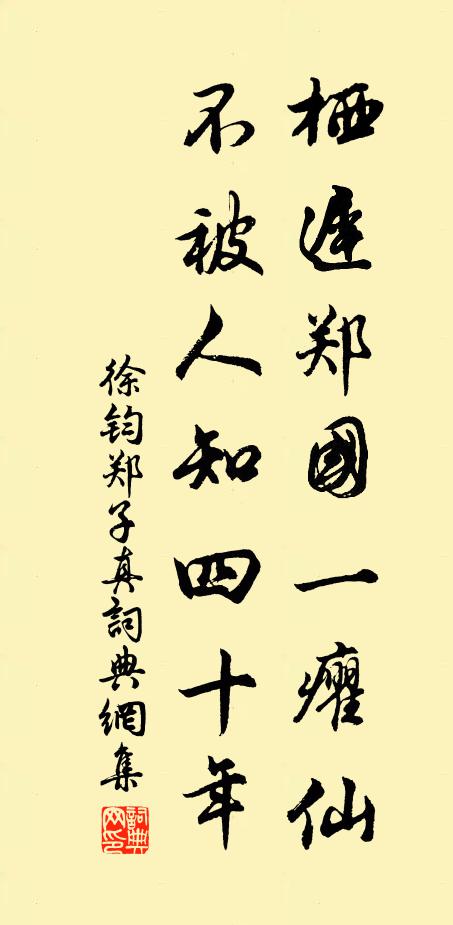 栖遲郑國一癯仙
不被人知四十年
徐鈞郑子真詞典網集
詞典网印